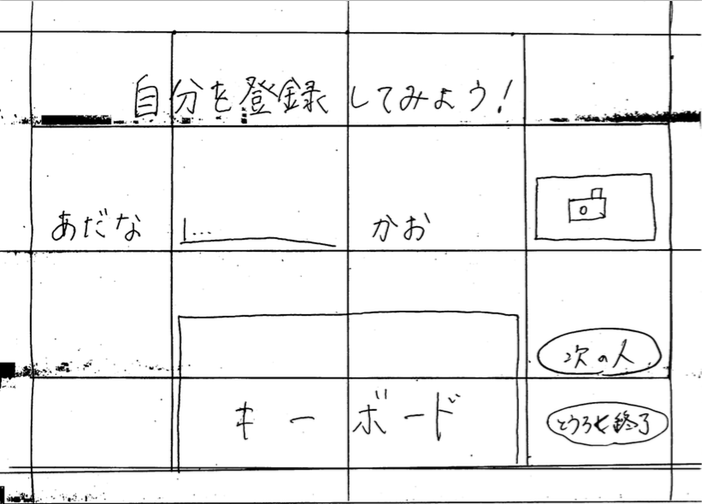 自分を登録してみよう!
あだな |... かお
次の人
キーボード とうろく終了